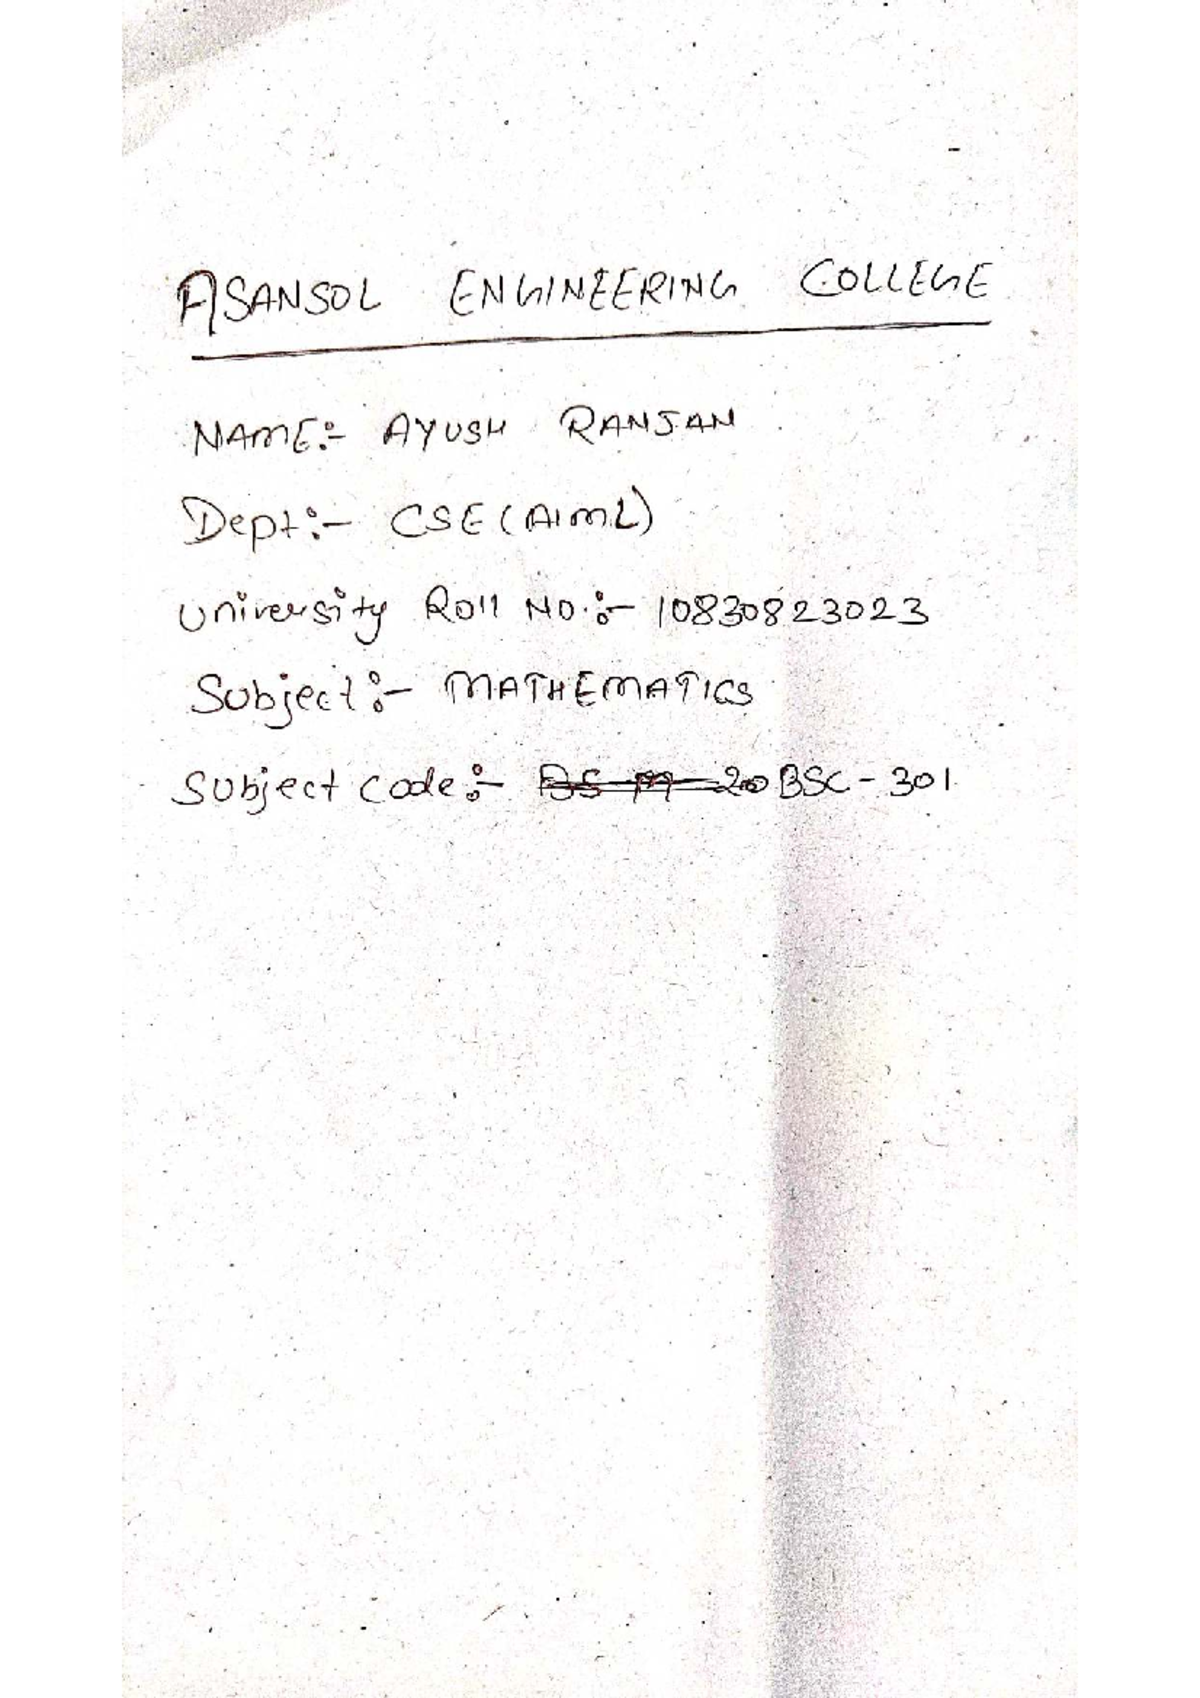 ASANSOL ENGINEERING COLLEGE
NAME:- AYUSH RANJAN
Dept:- CSE(AIML)
University Roll NO.:- 10830823023
Subject:- MATHEMATICS
Subject code:- BSC-301